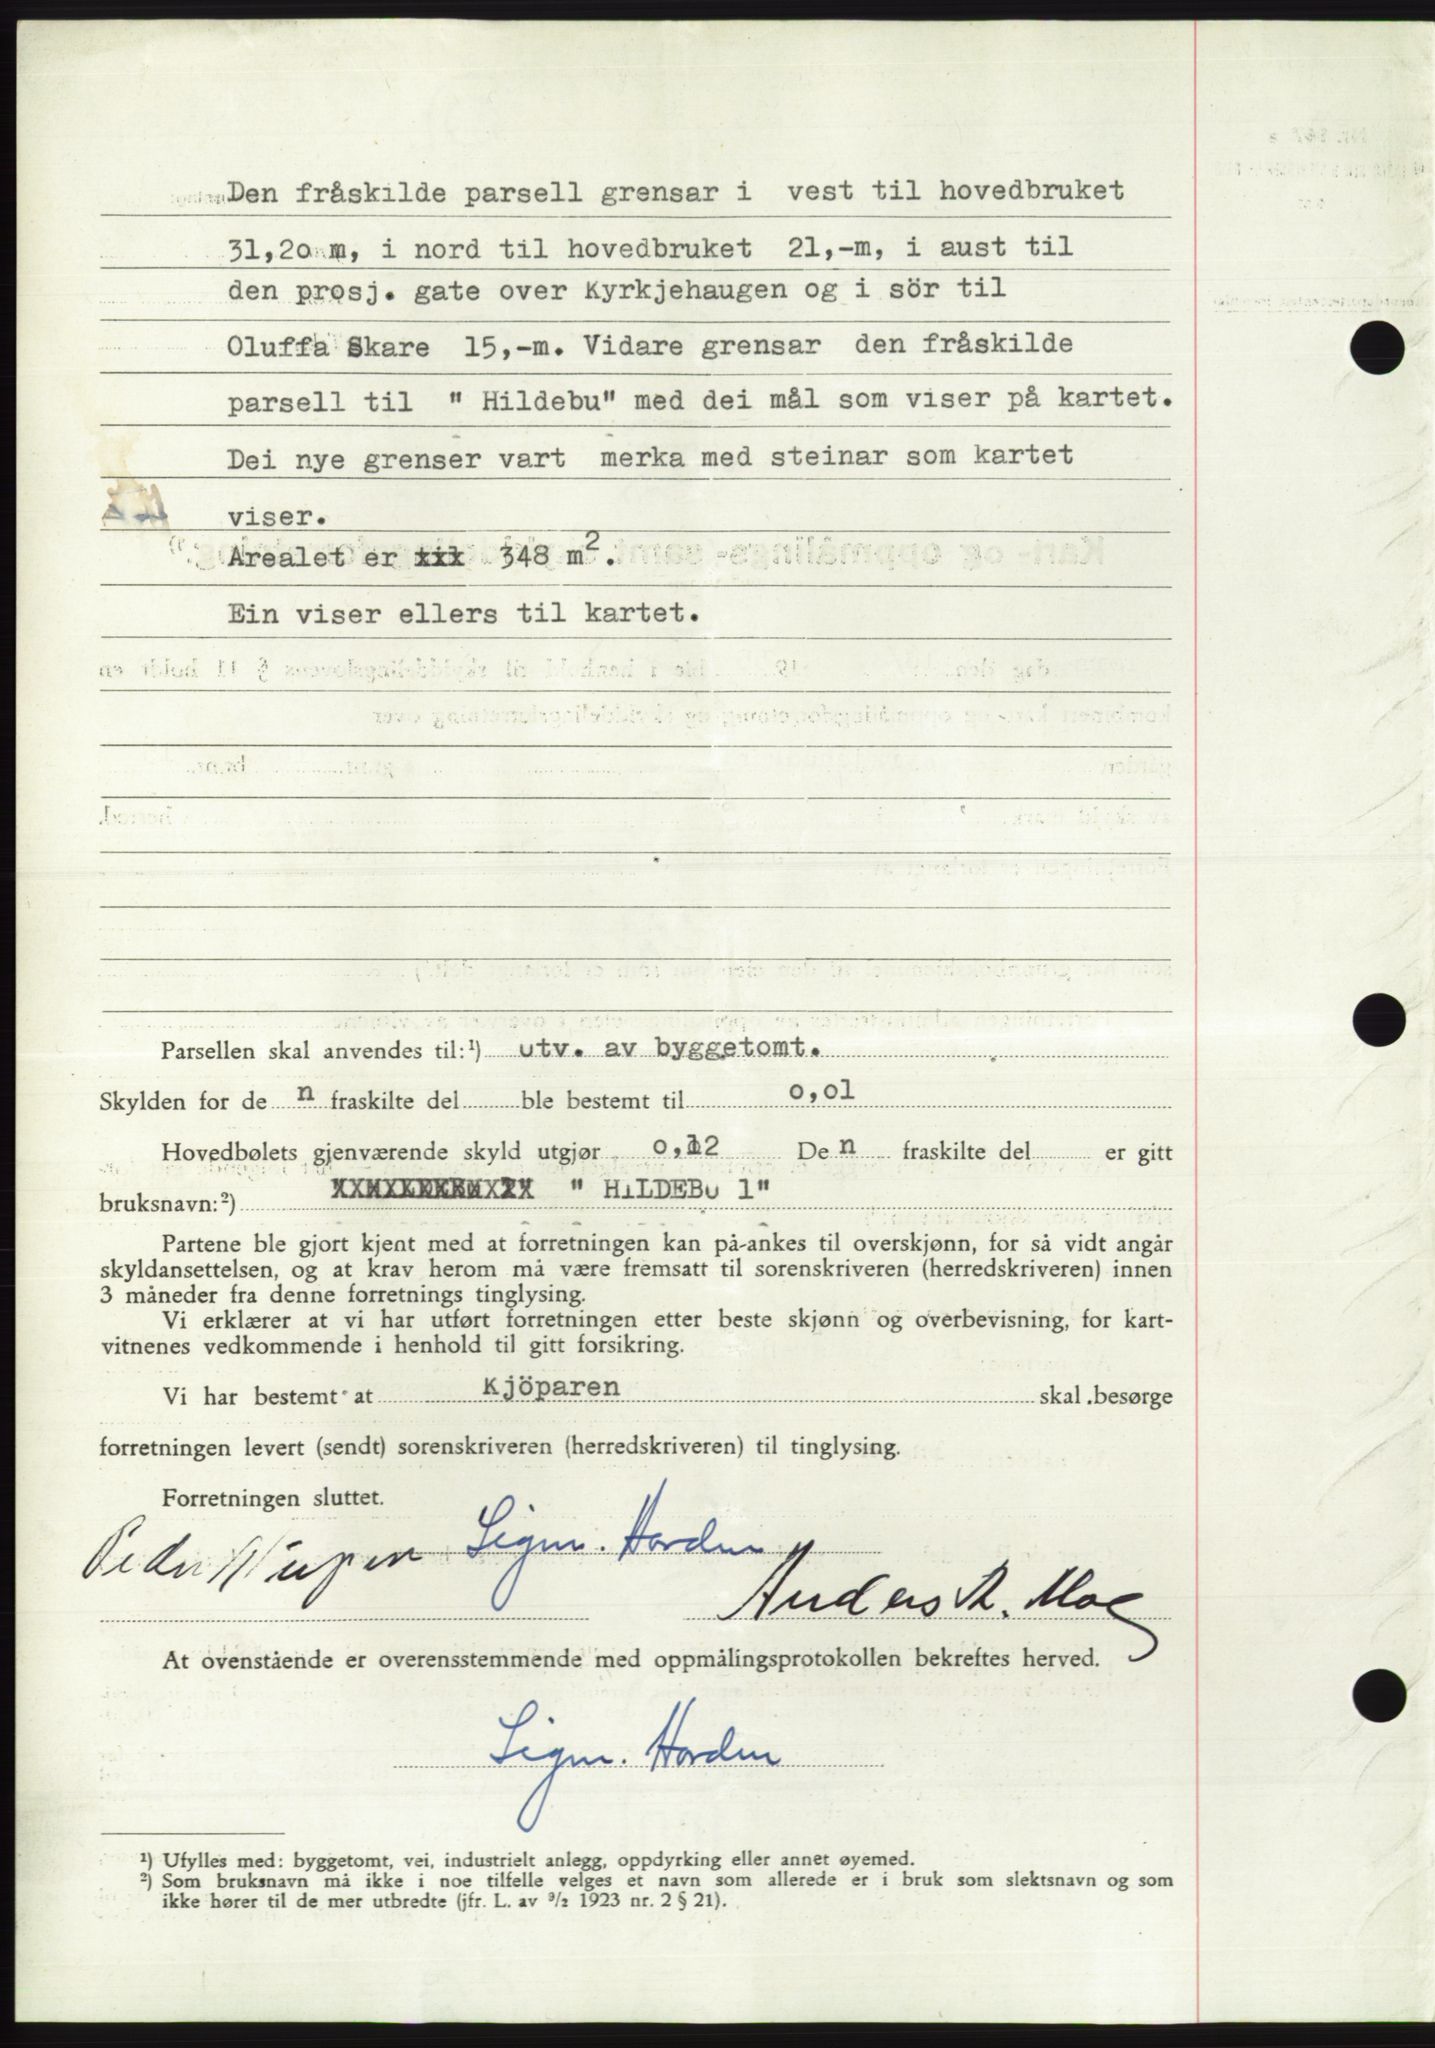 Den fråskilde parsell grensar i vest til hovedbruket
31,20 m, i nord til hovedbruket 21,-m, i aust til
den prosj. gate over Kyrkjehaugen og i sör til
Oluffa Skare 15,-m. Vidare grensar den fråskilde
parsell til " Hildebu" med dei mål som viser på kartet.
Dei nye grenser vart merka med steinar som kartet
viser.
Arealet er 348 m2.
Ein viser ellers til kartet.
Parsellen skal anvendes til:¹) utv. av byggetomt.
Skylden for de n fraskilte del ble bestemt til 0,01
Hovedbølets gjenværende skyld utgjør 0,12 De n fraskilte del er gitt
bruksnavn:²) " HILDEBU 1"
Partene ble gjort kjent med at forretningen kan på-ankes til overskjønn, for så vidt angår
skyldansettelsen, og at krav herom må være fremsatt til sorenskriveren (herredskriveren) innen
3 måneder fra denne forretnings tinglysing.
Vi erklærer at vi har utført forretningen etter beste skjønn og overbevisning, for kart-
vitnenes vedkommende i henhold til gitt forsikring.
Vi har bestemt at Kjöparen skal besørge
forretningen levert (sendt) sorenskriveren (herredskriveren) til tinglysing.
Forretningen sluttet.
Sigm. Horden
Anders R. Moe
At ovenstående er overensstemmende med oppmålingsprotokollen bekreftes herved.
Sigm. Horden
¹) Ufylles med: byggetomt, vei, industrielt anlegg, oppdyrking eller annet øyemed.
²) Som bruksnavn må ikke i noe tilfelle velges et navn som allerede er i bruk som slektsnavn og som
ikke hører til de mer utbredte (jfr. L. av ⁹/₂ 1923 nr. 2 § 21).